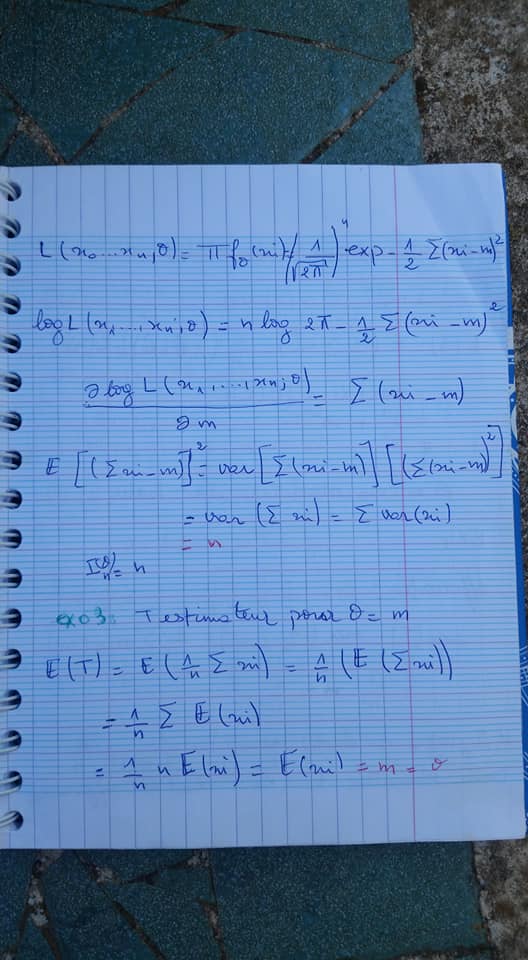 L(x₀...xₙ,θ) = π f_θ(xi) = (1/√2π)ⁿ exp - 1/2 Σ(xi-m)²
log L(x₁,...,xₙ;θ) = n log 2π - 1/2 Σ(xi - m)²
∂ log L(x₁,...,xₙ;θ) / ∂m = Σ(xi - m)
E[(Σxi-m)]² = var[Σ(xi-m)] [(Σ(xi-m)²]
= var(Σxi) = Σ var(xi)
= n
Iₙ(θ) = n
exo3: T estimateur pour θ = m
E(T) = E(1/n Σxi) = 1/n (E(Σxi))
= 1/n Σ E(xi)
= 1/n n E(xi) = E(xi) = m = θ